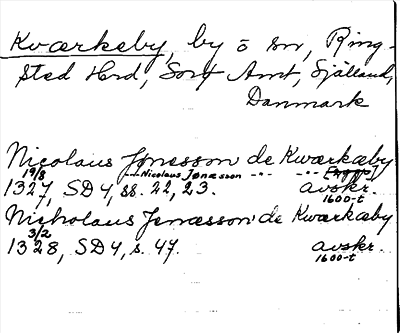 Kværkeby, by o sn, Ring-
sted Hrd, Sorø Amt, Själland,
Danmark
Nicolaus Jønæsson de Kwærkæby
19/8 --- Nicolaus Jønæsson --- ---
1327, SD4, ss. 22, 23. avskr.
1600-t
Nicholaus Jenæsson de Kwærkæby
3/2
1328, SD4, s. 47. avskr.
1600-t